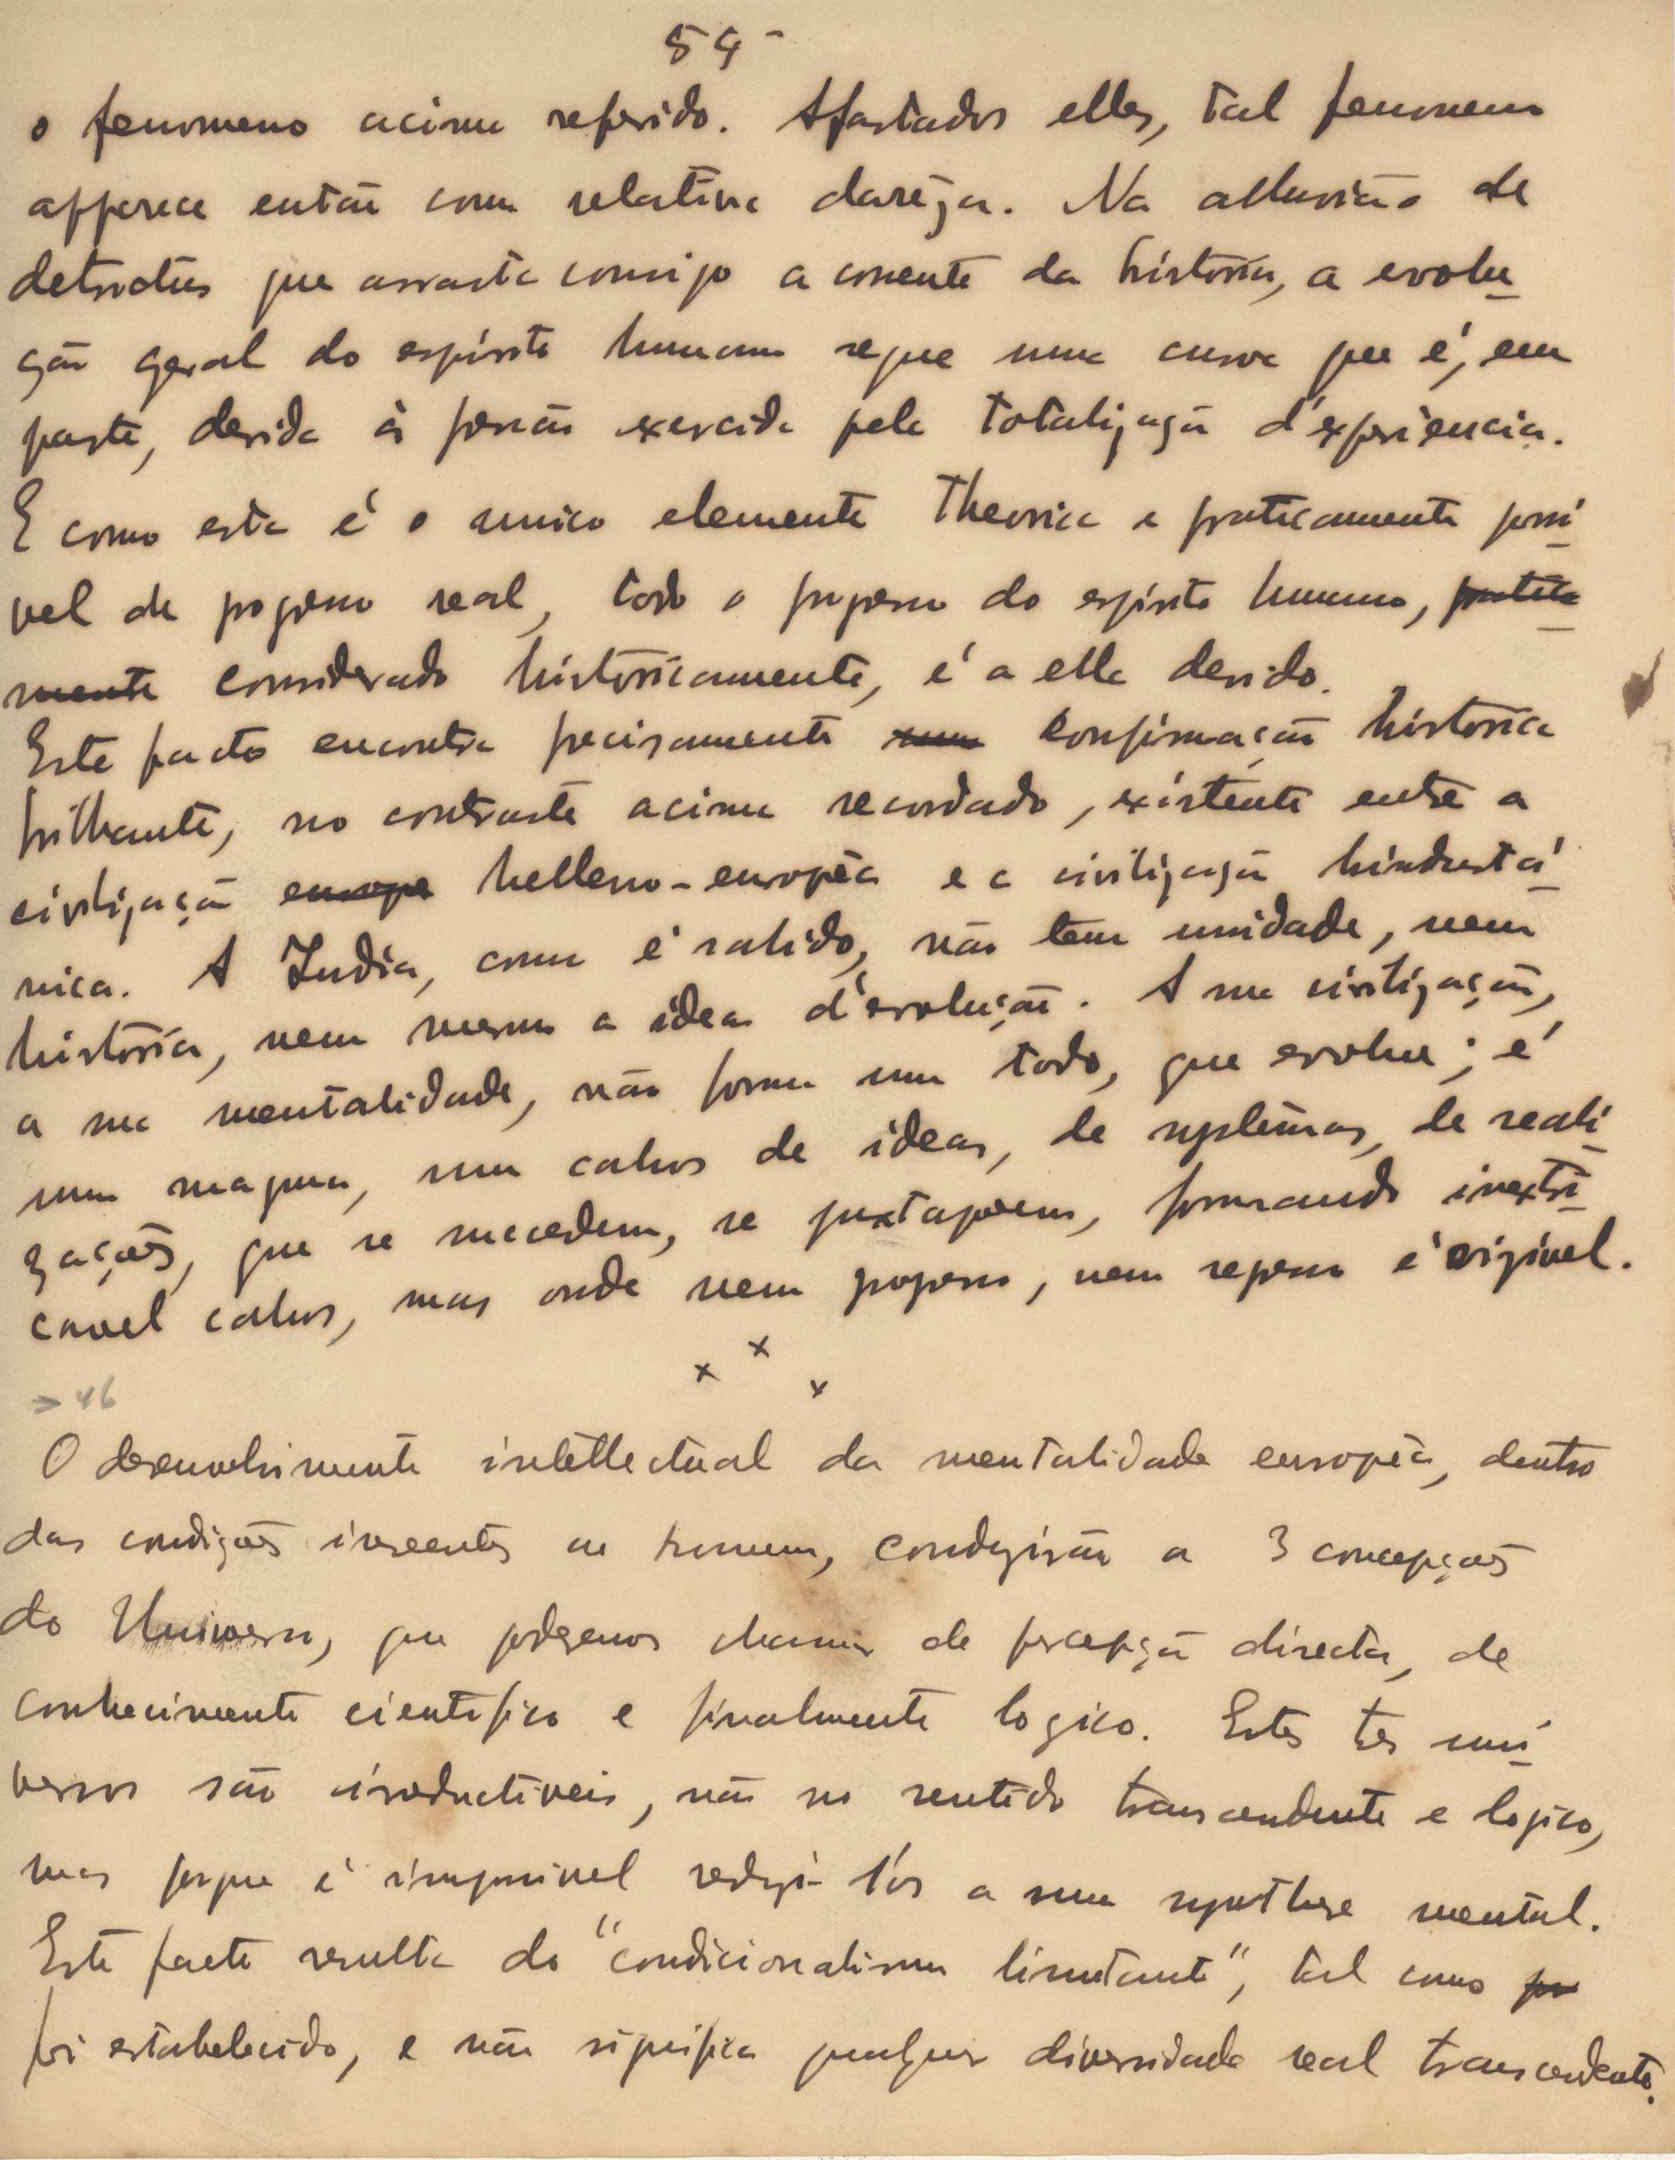 54 -
o fenomeno acima referido. Afastados elles, tal fenomeno
apparece então com relativa clareza. Na alluvião de
detrictus que arrasta comsigo a corrente da historia, a evolu-
ção geral do espirito humano segue uma curva que é, em
parte, devida á pressão exercida pela totalização d'experiencia.
E como esta é o unico elemento theorica e praticamente possi-
vel de progresso real, todo o progresso do espirito humano, pratica-
mente considerado historicamente, é a ella devido.
Este facto encontra precisamente uma confirmação historica
brilhante, no contraste acima recordado, existente entre a
civilização europe helleno-européa e a civilização hindusta-
nica. A India, como é sabido, não tem unidade, nem
historia, nem mesmo a idea d'evolução. A sua civilização,
a sua mentalidade, não forma um todo, que evolue; é
um magma, um cahos de ideas, de systemas, de reali-
zações, que se succedem, se juxtapoem, formando inextri-
cavel cahos, mas onde nem progresso, nem regresso é visivel.
x x x
→ 46
O desenvolvimento intellectual da mentalidade européa, dentro
das condições inherentes ao homem, conduziram a 3 concepções
do Universo, que podemos chamar de percepção directa, de
conhecimento cientifico e finalmente logico. Estes tres uni-
versos são irreductiveis, não no sentido transcendente e logico,
mas porque é impossivel reduzi-los a uma synthese mental.
Este facto resulta do "condicionalismo limitante", tal como fo
foi estabelecido, e não significa qualquer diversidade real transcendente.